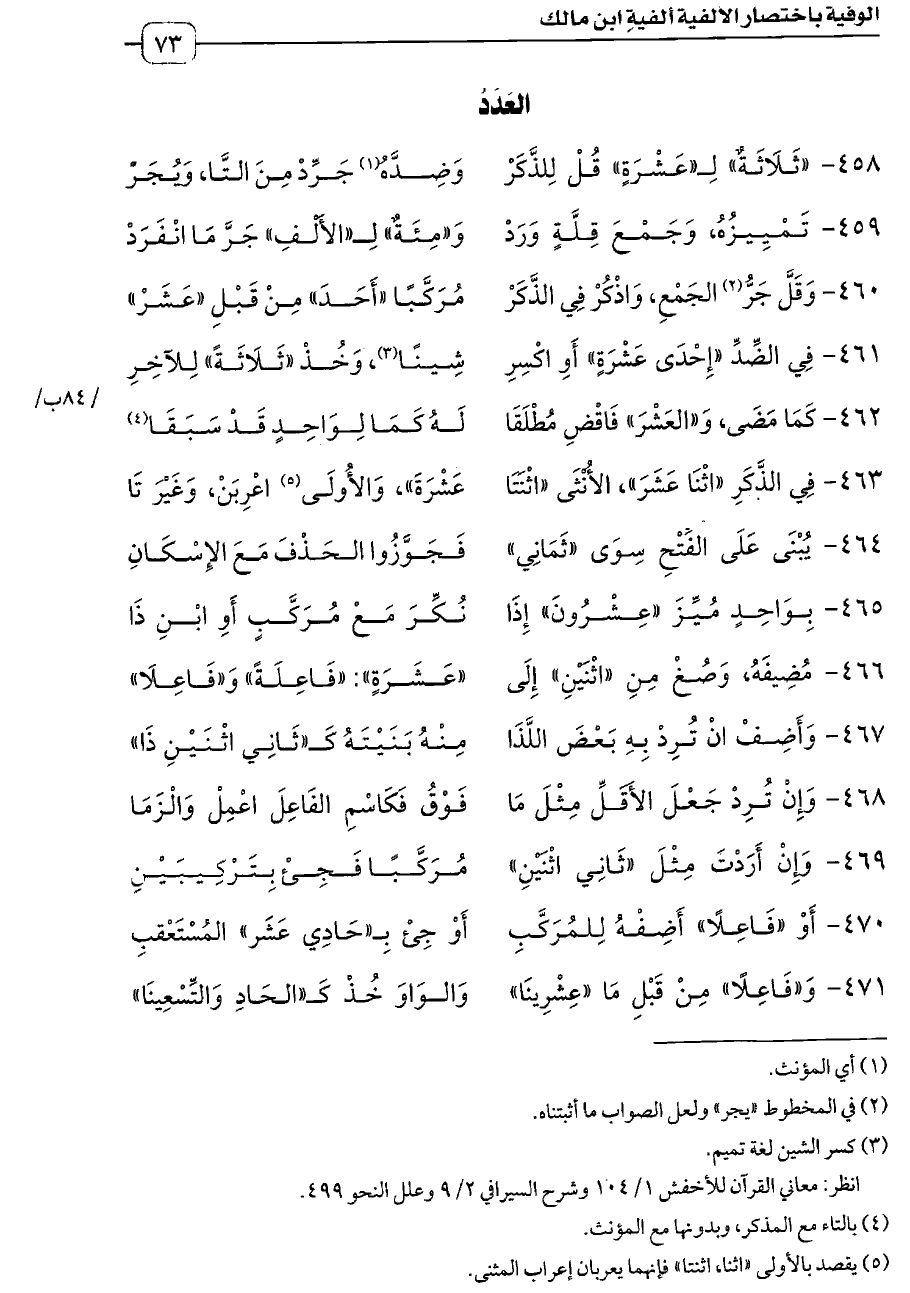 الوفية باختصار الألفية ألفيةِ ابن مالك
٧٣
العَدَدُ
٤٥٨- «ثَلَاثَةٌ» لِـ«عَشْرَةٍ» قُلْ لِلذَّكَرْ وَضِدَّهُ(١) جَرِّدْ مِنَ التَّا، وَيُجَرّْ
٤٥٩- تَمْيِيزُهُ، وَجَمْعَ قِلَّةٍ وَرَدْ وَ«مِئَةٌ» لِـ«الأَلْفِ» جَرَّ مَا انْفَرَدْ
٤٦٠- وَقَلَّ جَرُّ(٢) الجَمْعِ، وَاذْكُرْ فِي الذَّكَرْ مُرَكَّبًا «أَحَدَ» مِنْ قَبْلِ «عَشَرْ»
٤٦١- فِي الضِّدِّ «إِحْدَى عَشْرَةٍ» أَوِ اكْسِرِ شِينًا(٣)، وَخُذْ «ثَلَاثَةً» لِلآخِرِ
/٨٤ب/
٤٦٢- كَمَا مَضَى، وَ«العَشْرَ» فَاقْضِ مُطْلَقَا لَهُ كَمَا لِوَاحِدٍ قَدْ سَبَقَا(٤)
٤٦٣- فِي الذَّكَرِ «اثْنَا عَشَرَ»، الأُنْثَى «اثْنَتَا عَشْرَةَ»، وَالأُولَى(٥) اعْرِبَنْ، وَغَيْرَ تَا
٤٦٤- يُبْنَى عَلَى الفَتْحِ سِوَى «ثَمَانِي» فَجَوَّزُوا الحَذْفَ مَعَ الإِسْكَانِ
٤٦٥- بِوَاحِدٍ مُيِّزَ «عِشْرُونَ» إِذَا نُكِّرَ مَعْ مُرَكَّبٍ أَوِ ابْنِ ذَا
٤٦٦- مُضِيفَهُ، وَصُغْ مِنِ «اثْنَيْنِ» إِلَى «عَشَرَةٍ»: «فَاعِلَةً» وَ«فَاعِلَا»
٤٦٧- وَأَضِفْ انْ تُرِدْ بِهِ بَعْضَ اللَّذَا مِنْهُ بَنَيْتَهُ كَـ«ثَانِي اثْنَيْنِ ذَا»
٤٦٨- وَإِنْ تُرِدْ جَعْلَ الأَقَلِّ مِثْلَ مَا فَوْقُ فَكَاسْمِ الفَاعِلِ اعْمِلْ وَالْزَمَا
٤٦٩- وَإِنْ أَرَدْتَ مِثْلَ «ثَانِي اثْنَيْنِ» مُرَكَّبًا فَجِئْ بِتَرْكِيبَيْنِ
٤٧٠- أَوْ «فَاعِلًا» أَضِفْهُ لِلمُرَكَّبِ أَوْ جِئْ بِـ«حَادِي عَشَر» المُسْتَعْقبِ
٤٧١- وَ«فَاعِلًا» مِنْ قَبْلِ مَا «عِشْرِينَا» وَالوَاوَ خُذْ كَـ«الحَادِ وَالتِّسْعِينَا»
(١) أي المؤنث.
(٢) في المخطوط «يجر» ولعل الصواب ما أثبتناه.
(٣) كسر الشين لغة تميم.
انظر: معاني القرآن للأخفش ١/ ١٠٤ وشرح السيرافي ٢/ ٩ وعلل النحو ٤٩٩.
(٤) بالتاء مع المذكر، وبدونها مع المؤنث.
(٥) يقصد بالأولى «اثنا، اثنتا» فإنهما يعربان إعراب المثنى.